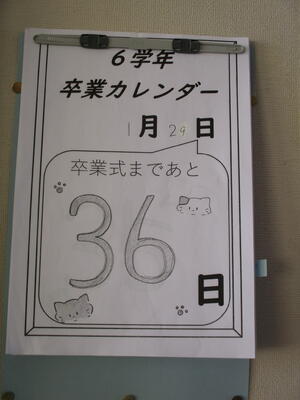 6学年
卒業カレンダー
1月29日
卒業式まであと
36日